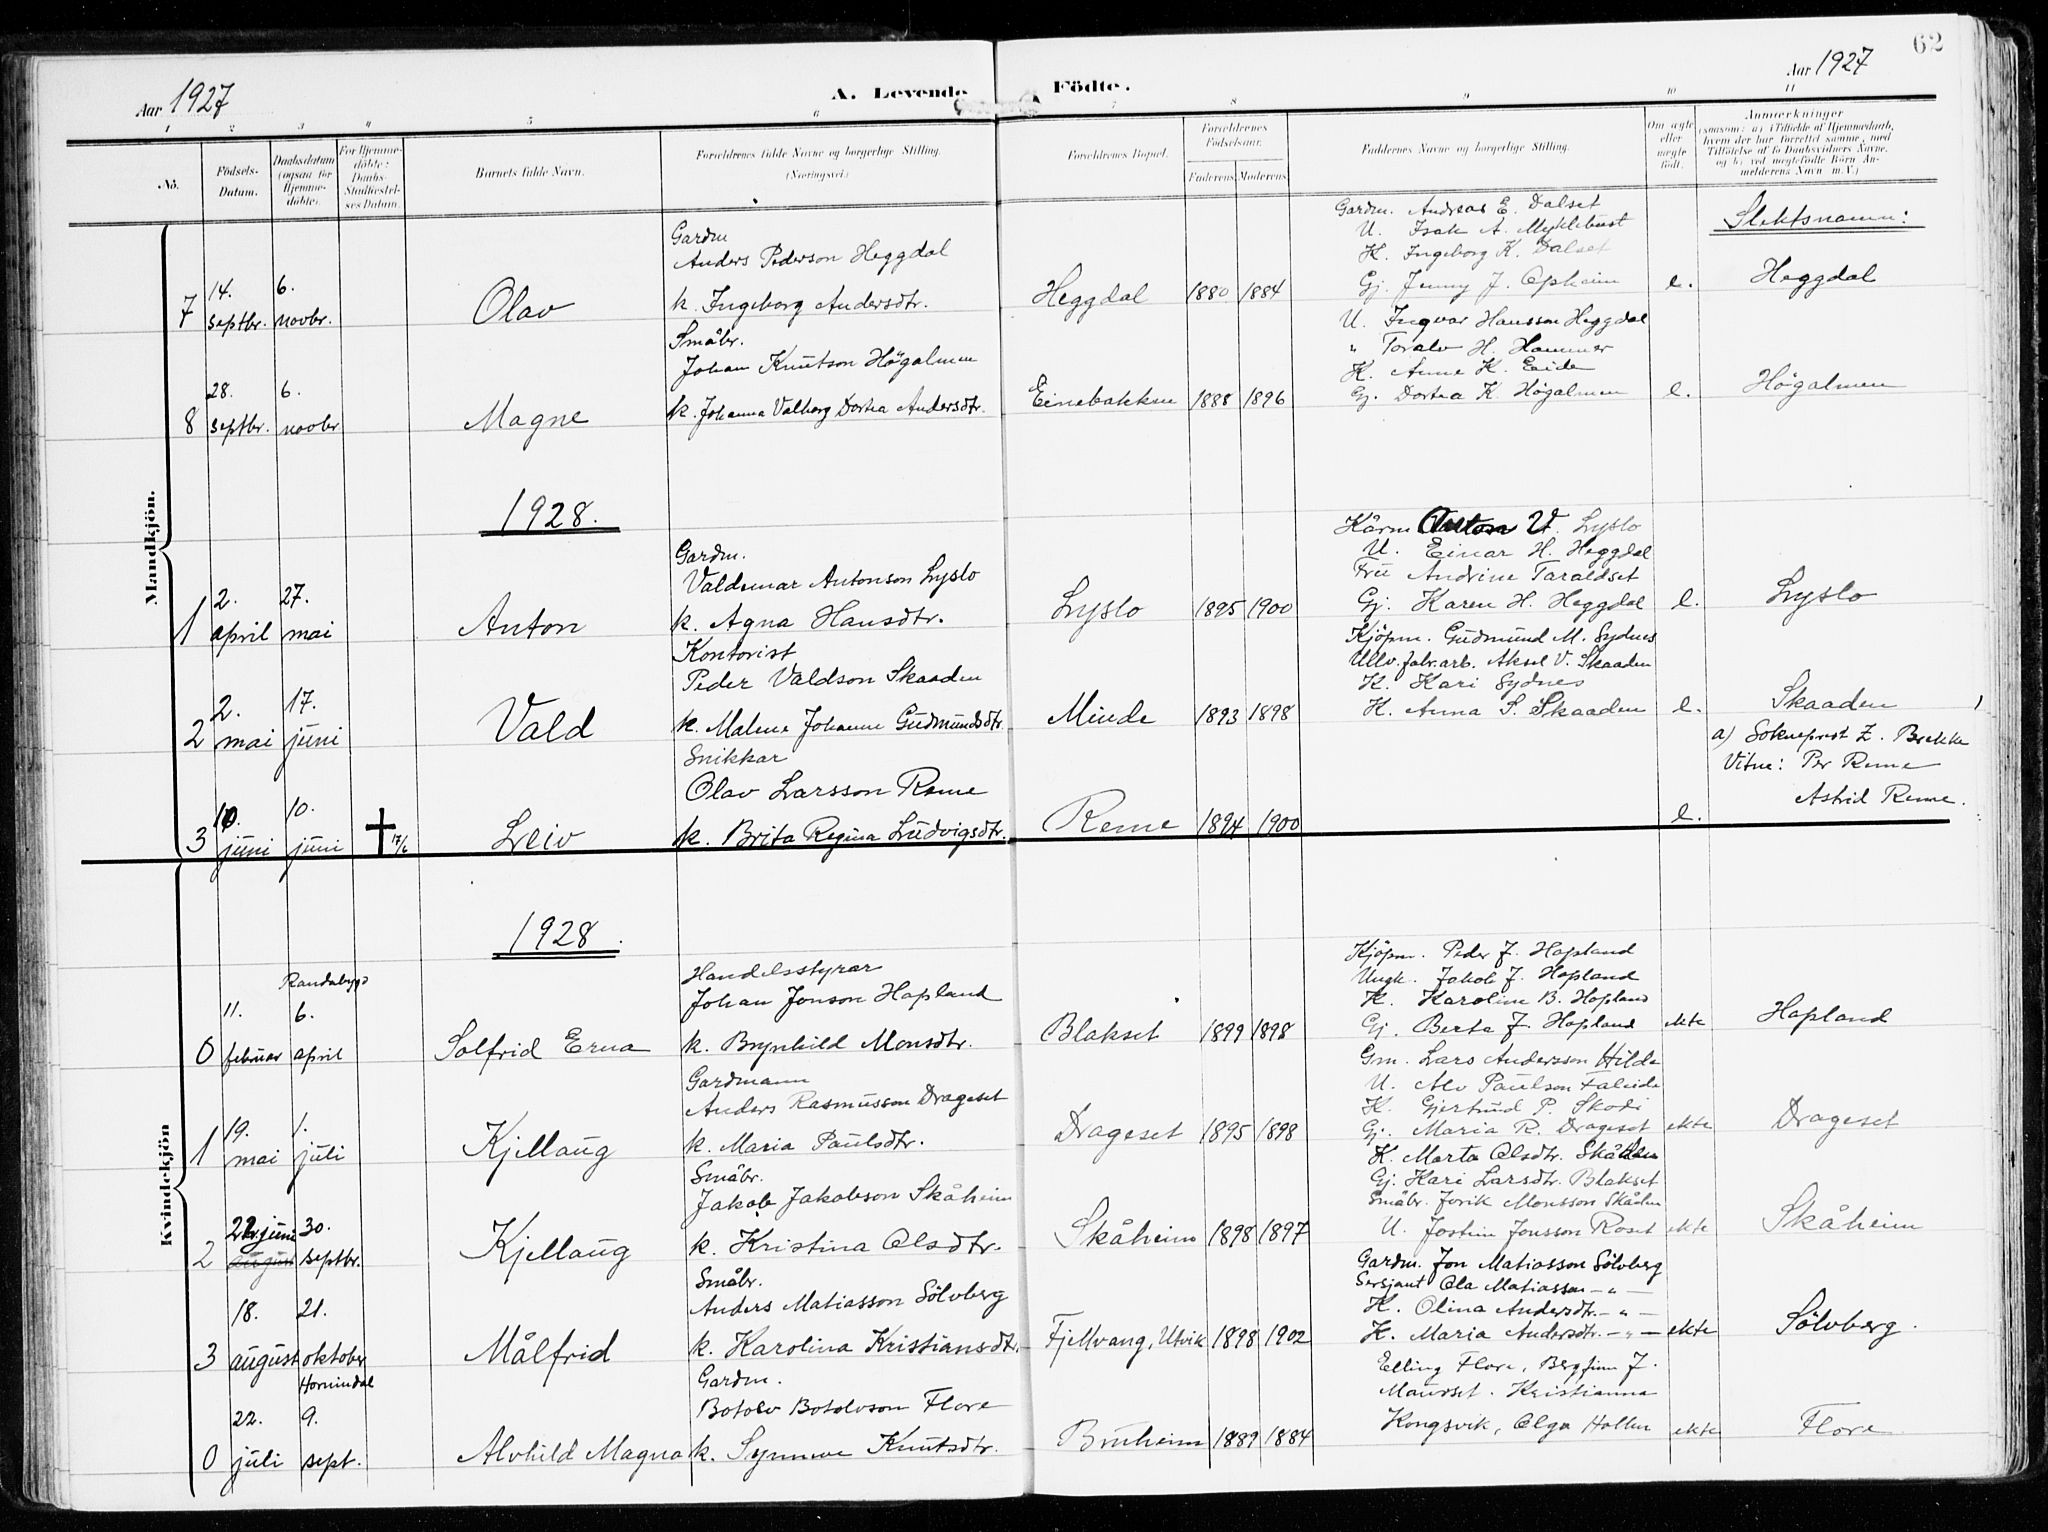 62
Aar 1927
A. Levende
Födte.
Aar 1927
1 2 3 4 5 6 7 8 9 10 11
No.
Födsels-
Datum.
Daabsdatum
(ogsaa for
Hjemme-
döbte).
For Hjemme-
döbte:
Daabs-
Stadfæstel-
ses Datum.
Barnets fulde Navn.
Forældrenes fulde Navne og borgerlige Stilling.
(Næringsvei.)
Forældrenes Bopæl.
Forældrenes
Födselsaar.
Faderens Moderens
Faddernes Navne og borgerlige Stilling.
Om ægte
eller
uægte
födt.
Anmærkninger
(saasom: a) i Tilfælde af Hjemmedaab,
hvem der har forrettet samme, med
Tilföielse af to Daabsvidners Navne,
og b) ved uægtefödte Börn An-
melderens Navn m.V.)
Slektsnamn:
Mandkjön.
Gardm
Anders Pederson Heggdal
k. Ingeborg Andersdtr.
7
14. septbr.
6. novbr.
Olav
Heggdal 1880 1884
Gardm. Andreas E. Dalset
U. Isak A. Myklebust
K. Ingeborg K. Dalset
Gj. Jenny J. Opheim
e.
Heggdal
8
28. septbr.
6. novbr
Magne
Småbr.
Johan Knutson Högalmen
k. Johanna Valborg Dortea Andersdtr.
Einebakken 1888 1896
U. Ingvar Hansson Heggdal
" Toralv H. Hammer
K. Anne K. Eide
Gj. Dortea K. Högalmen
e.
Högalmen
1928.
1
2. april
27. mai
Anton
Gardm.
Valdemar Antonson Lyslo
k. Agna Hansdtr.
Lyslo 1895 1900
Kårm Anton V. Lyslo
U. Einar H. Heggdal
Fru Andrine Taraldset
Gj. Karen H. Heggdal
e.
Lyslo
2
2. mai
17. juni
Vald
Kontorist
Peder Valdson Skaaden
k. Malene Johanne Gudmundsdtr.
Minde 1893 1898
Kjöpm. Gudmund M. Sydnes
Ullv.fabr.arb. Aksel V. Skaaden
K. Kari Sydnes
K. Anna S. Skaaden
e.
Skaaden
3
10. juni
10. juni
17/6
Leiv
Snikkar
Olav Larsson Reme
k. Brita Regina Ludvigsdtr.
Reme 1894 1900
e.
a) Sokneprest Z. Brekke
Vitne: Per Reme
Astrid Reme.
Kvindekjön
1928.
Randabygd
0
11. februar
6. april
Solfrid Erna
Handelsstyrar
Johan Jonson Hopland
k. Brynhild Monsdtr.
Blakset 1899 1898
Kjöpm. Peder J. Hopland
Ungk. Jakob J. Hopland
K. Karoline B. Hopland
Gj. Berta J. Hopland
ekte
Hopland
1
19. mai
1. juli
Kjellaug
Gardmann
Anders Rasmusson Drageset
k. Maria Paulsdtr.
Drageset 1895 1898
Gm. Lars Andersson Hilde
U. Alv Paulson Faleide
K. Gjertrud P. Skodi
Gj. Maria R. Drageset
ekte
Drageset
2
22. juni
august
30. septbr.
Kjellaug
Småbr.
Jakob Jakobson Skåheim
k. Kristina Olsdtr.
Skåheim 1898 1897
K. Marta Olsdtr. Skåden
Gj. Kari Larsdtr. Blakset
Småbr. Jorik Monsson Skåden
U. Jostein Jonsson Roset
ekte
Skåheim
3
18. august
21. oktober
Målfrid
Småbr.
Anders Matiasson Sölvberg
k. Karolina Kristiansdtr.
Fjellvang, Utvik 1898 1902
Gardm. Jon Matiasson Sölvberg
Sersjant Ola Matiasson – " –
K. Olina Andersdtr. – " –
K. Maria Andersdtr. – " –
ekte
Sölvberg.
Hornindal
0
22. juli
9. sept.
Alvhild Magna
Gardm.
Botolv Botolvson Flore
k. Synnøve Knutsdtr.
Bruheim 1889 1884
Elling Flore, Bergfinn J.
Maurset. Kristianna
Kongsvik, Olga Hollen
ekte
Flore